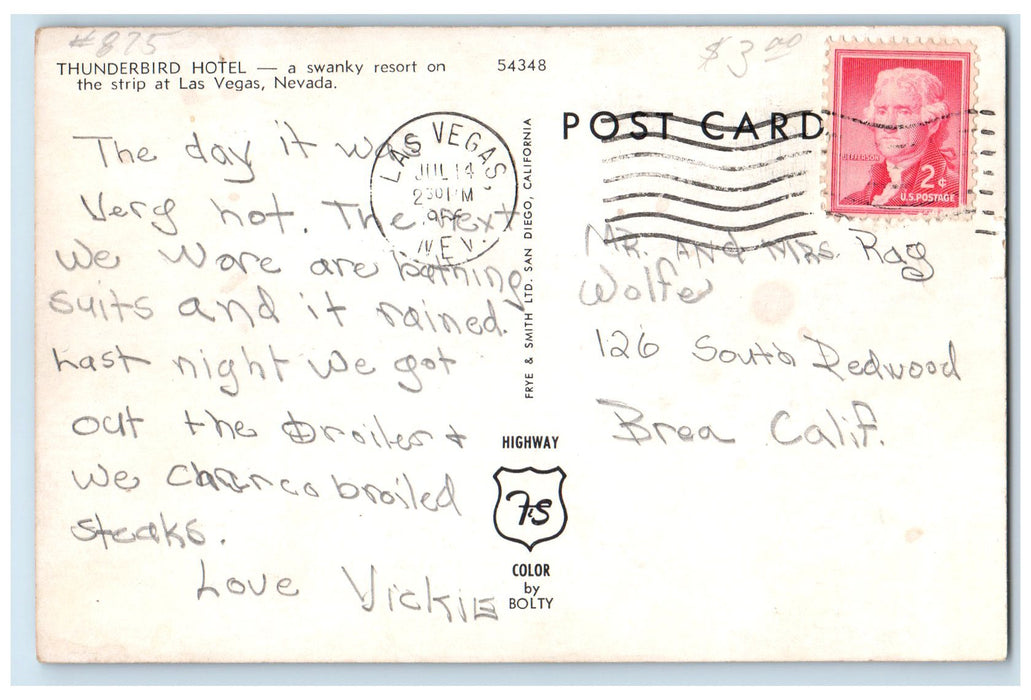 #875
$3.00
THUNDERBIRD HOTEL — a swanky resort on
the strip at Las Vegas, Nevada.
54348
POST CARD
JEFFERSON
2¢
U.S. POSTAGE
LAS VEGAS,
JUL 14
230 PM
NEV.
The day it was
Very hot. The next
we wore are bathing
suits and it rained.
Last night we got
out the broiler +
we charco broiled
steaks.
Love Vickie
FRYE & SMITH LTD. SAN DIEGO, CALIFORNIA
HIGHWAY
FS
COLOR
by
BOLTY
Mr. and Mrs. Ray
Wolfe
126 South Redwood
Brea Calif.